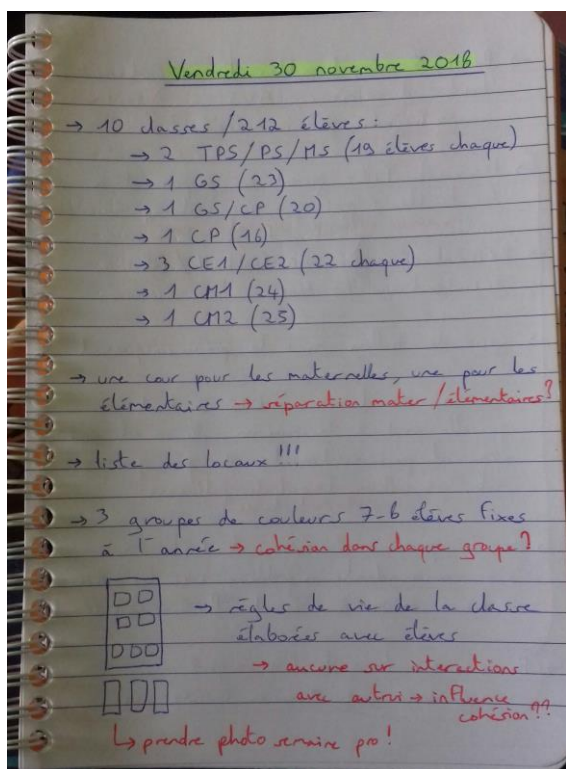 Vendredi 30 novembre 2018
→ 10 classes / 212 élèves :
→ 2 TPS/PS/MS (19 élèves chaque)
→ 1 GS (23)
→ 1 GS/CP (20)
→ 1 CP (16)
→ 3 CE1/CE2 (22 chaque)
→ 1 CM1 (24)
→ 1 CM2 (25)
→ une cour pour les maternelles, une pour les
élémentaires → séparation mater/élémentaires?
→ liste des locaux !!!
→ 3 groupes de couleurs 7-6 élèves fixes
à l'année → cohésion dans chaque groupe?
→ règles de vie de la classe
élaborées avec élèves
→ aucune sur interactions
avec autrui → influence
cohésion??
↳ prendre photo semaine pro!